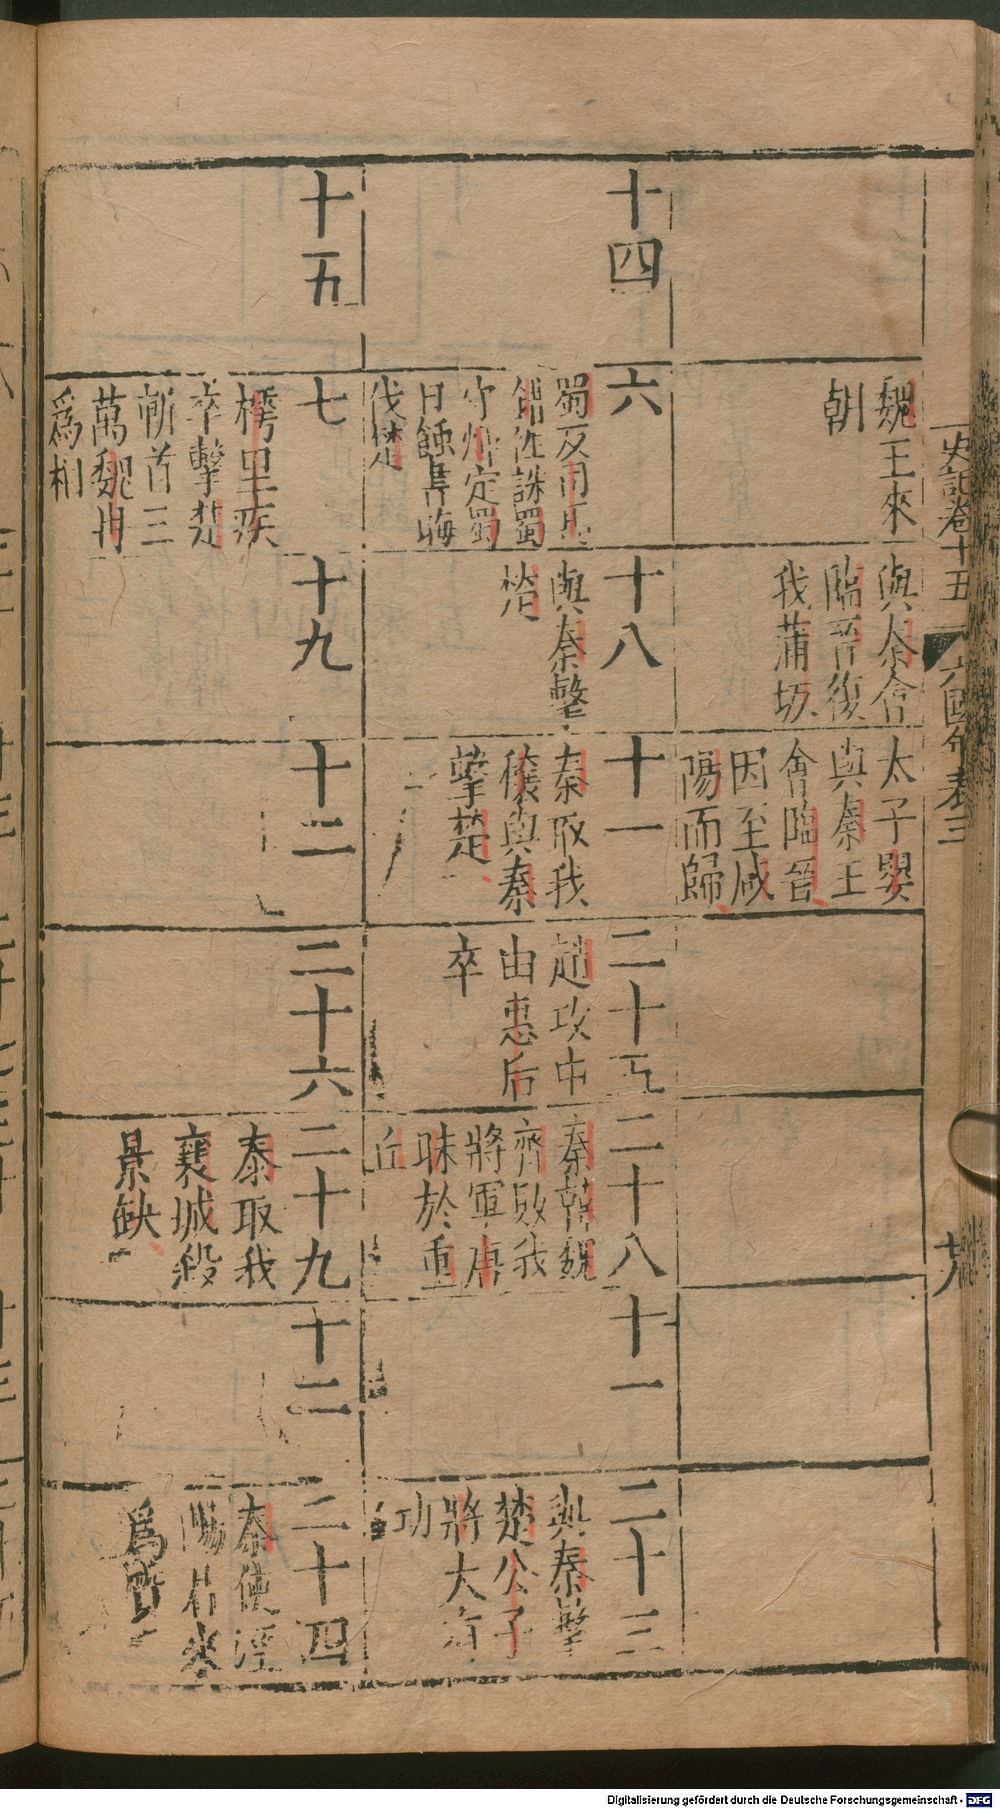 史記卷十五
六國年表三
廿九
魏王來
朝
與秦會
臨晉復
我蒲坂
太子嬰
與秦王
會臨晉
因至咸
陽而歸
十四
六
蜀反司馬
錯往誅蜀
守煇定蜀
日蝕晝晦
伐楚
十八
與秦擊
楚
十一
秦取我
穰與秦
擊楚
二十五
趙攻中
山惠后
卒
二十八
秦韓魏
齊敗我
將軍唐
眛於重
丘
十一
二十三
與秦擊
楚公子
將大有
功
十五
七
樗里疾
卒擊楚
斬首三
萬魏冉
爲相
十九
十二
二十六
二十九
秦取我
襄城殺
景缺
十二
二十四
秦使涇
陽君來
爲質
Digitalisierung gefördert durch die Deutsche Forschungsgemeinschaft - DFG